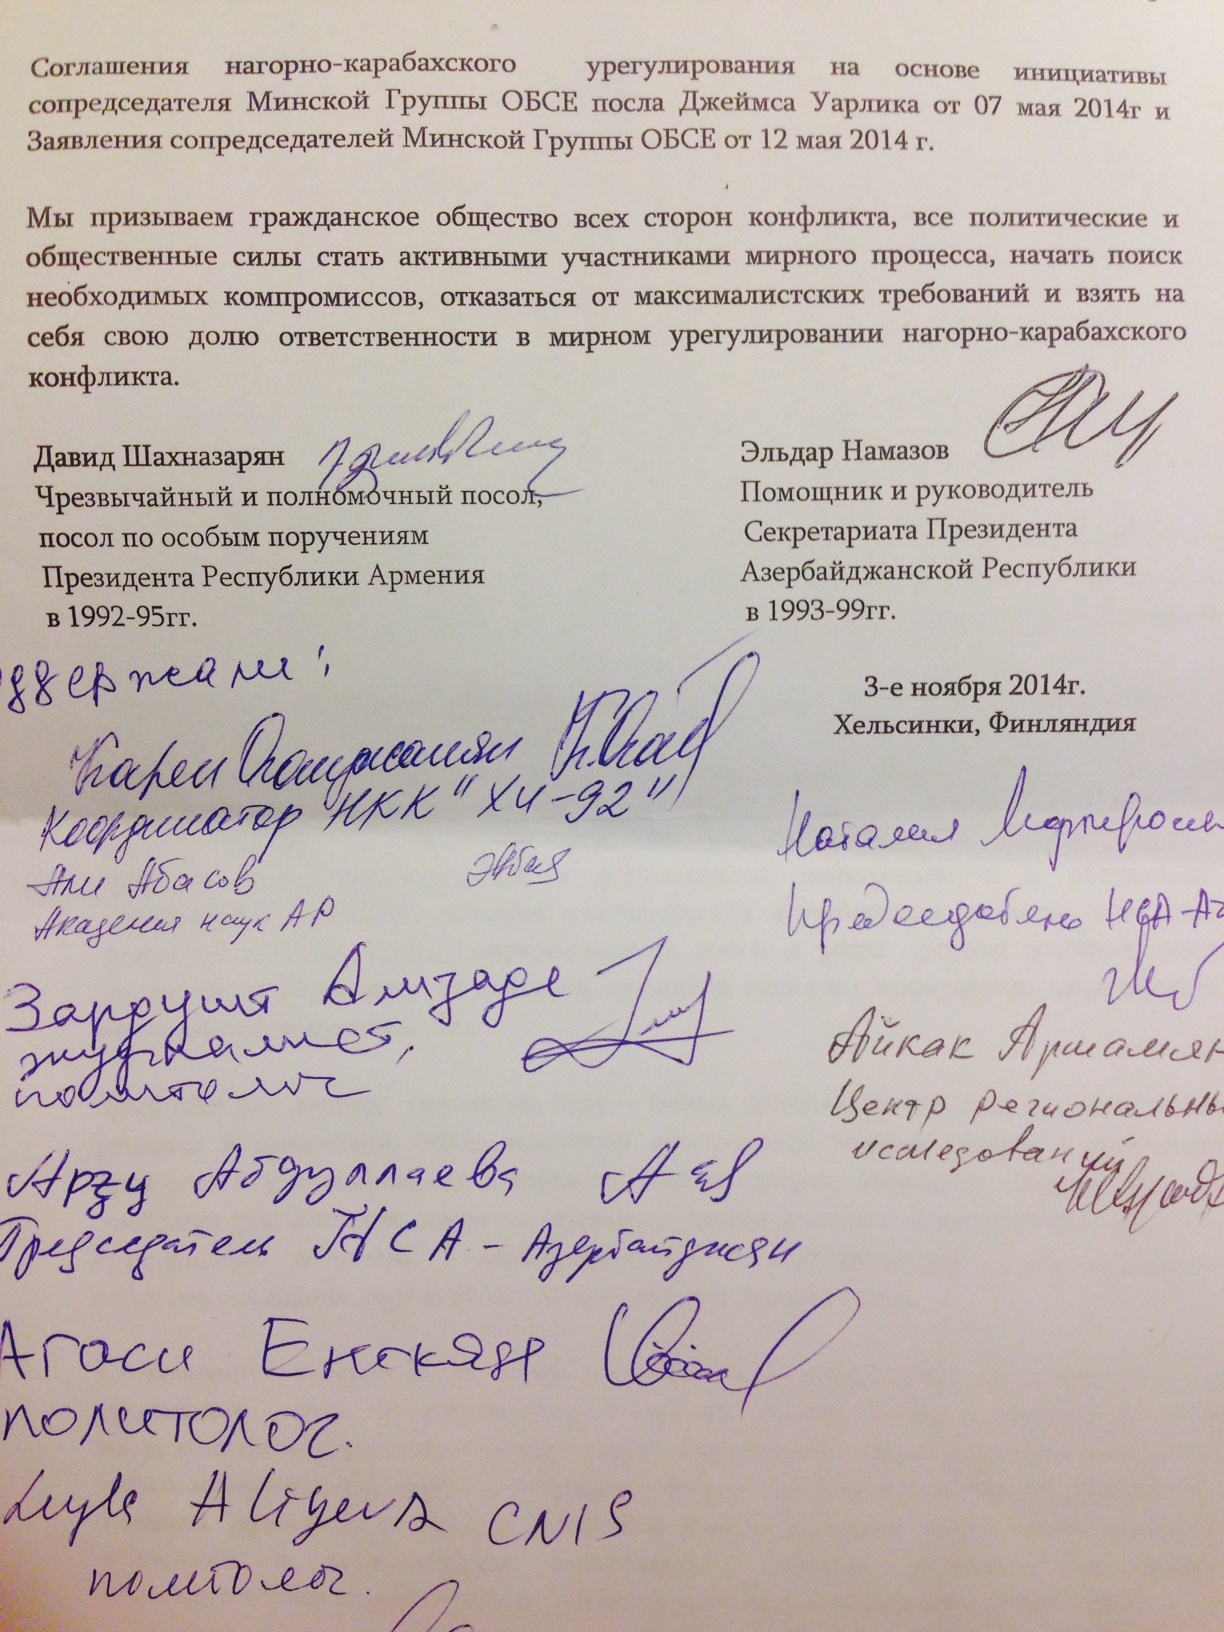 Соглашения нагорно-карабахского урегулирования на основе инициативы
сопредседателя Минской Группы ОБСЕ посла Джеймса Уарлика от 07 мая 2014г и
Заявления сопредседателей Минской Группы ОБСЕ от 12 мая 2014 г.
Мы призываем гражданское общество всех сторон конфликта, все политические и
общественные силы стать активными участниками мирного процесса, начать поиск
необходимых компромиссов, отказаться от максималистских требований и взять на
себя свою долю ответственности в мирном урегулировании нагорно-карабахского
конфликта.
Давид Шахназарян
Чрезвычайный и полномочный посол,
посол по особым поручениям
Президента Республики Армения
в 1992-95гг.
Эльдар Намазов
Помощник и руководитель
Секретариата Президента
Азербайджанской Республики
в 1993-99гг.
3-е ноября 2014г.
Хельсинки, Финляндия
ддержали:
Карен
Координатор НКК "ХИ-92"
Али Абасов
Академия наук АР
Зардушт Ализаде
журналист,
политолог
Арзу Абдуллаева
Председатель НСА - Азербайджан
Агаси Енокян
политолог.
Leyla Aliyeva CNIS
политолог.
Наталия
Председатель НСА-А
Айкак Аршамян
Центр региональны
исследований